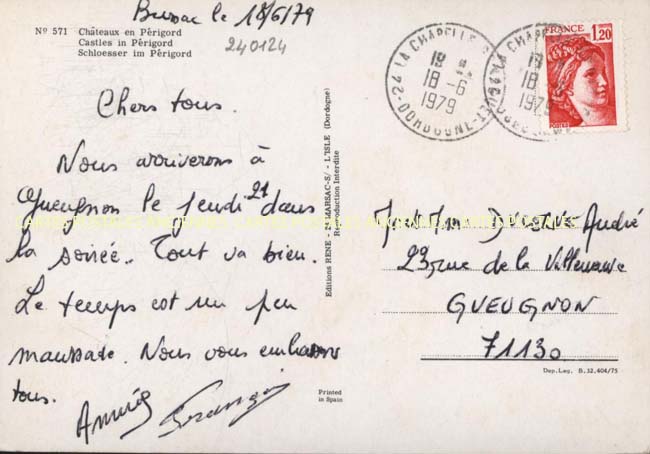 le 18/6/79
Nº 571 Châteaux en Périgord
Castles in Périgord
Schloesser im Périgord
240124
Chers tous.
Nous arriverons à
Gueugnon le jeudi 21 dans
la soirée. Tout va bien.
Le temps est un peu
maussade. Nous vous embrassons
tous.
Annie François
Editions RENE - 24 MARSAC-S/- L'ISLE (Dordogne)
Reproduction Interdite
Printed
in Spain
24 LA CHAPELLE
18 -6
1979
DORDOGNE
LA CHAPELLE
18
1979
FRANCE
1,20
André
23 rue de la Villeneuve
GUEUGNON
71130
Dep. Leg. B. 32.404/75